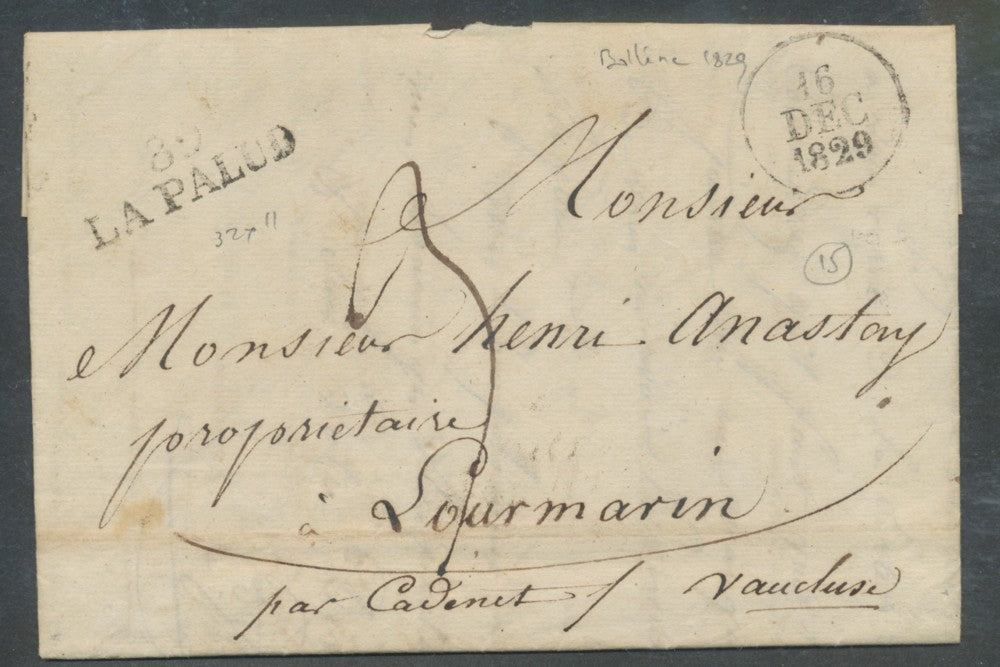 Bollène 1829
16
DEC
1829
LA PALUD
32x11
15
3
Monsieur
Monsieur henri Anastay
propriétaire
à Lourmarin
par Cadenet / Vaucluse